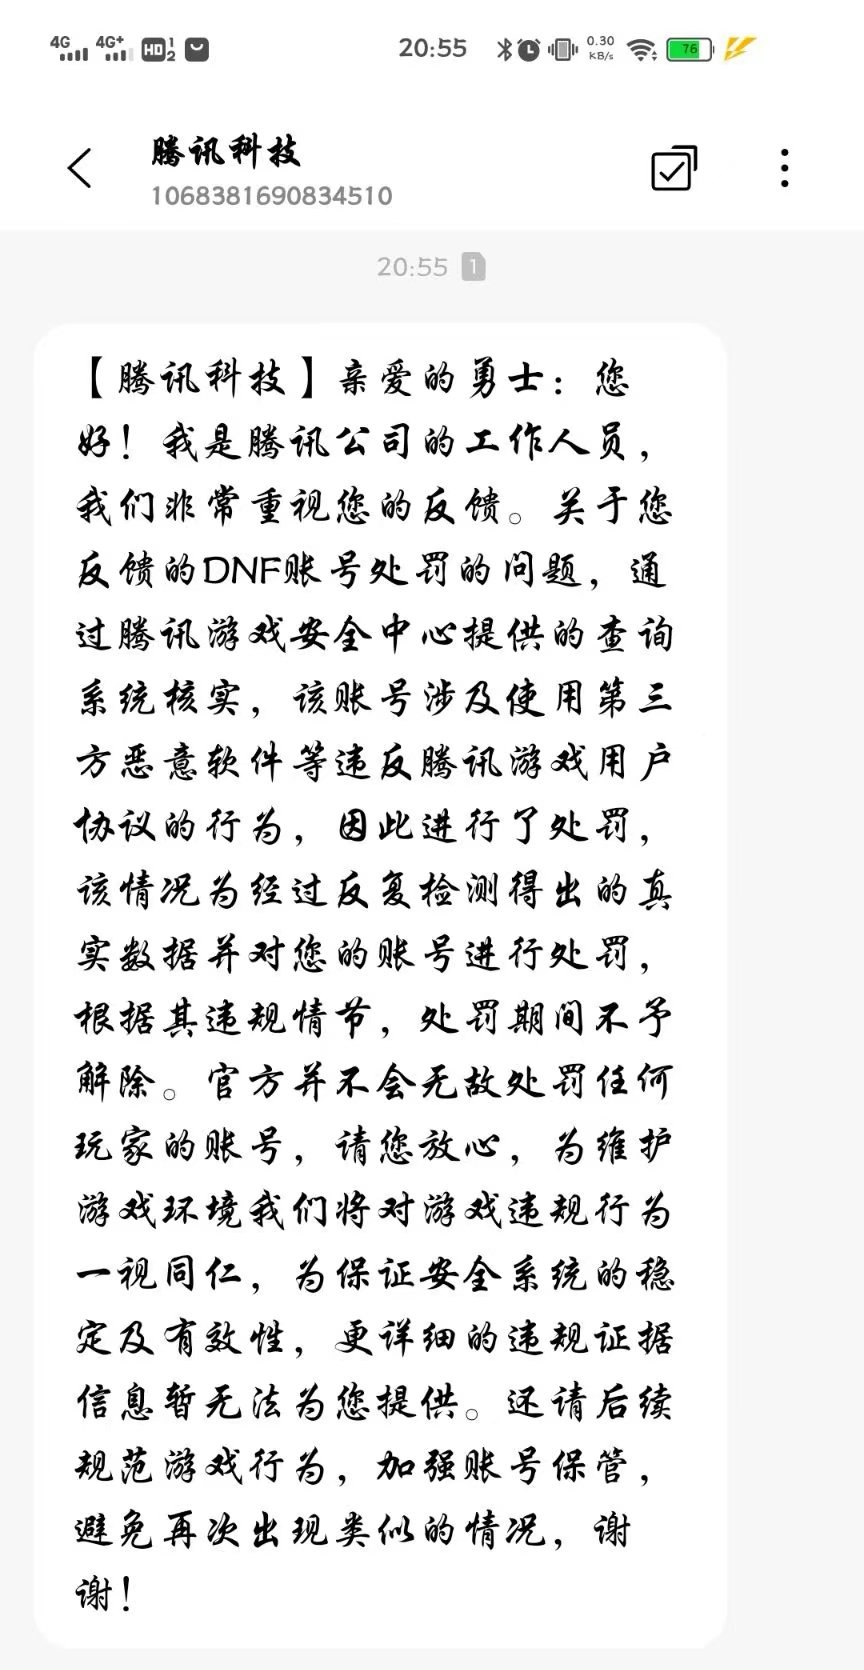 4G 4G+ HD 1 2 20:55 0.30 KB/s 76
腾讯科技
1068381690834510
20:55 1
【腾讯科技】亲爱的勇士：您
好！我是腾讯公司的工作人员，
我们非常重视您的反馈。关于您
反馈的DNF账号处罚的问题，通
过腾讯游戏安全中心提供的查询
系统核实，该账号涉及使用第三
方恶意软件等违反腾讯游戏用户
协议的行为，因此进行了处罚，
该情况为经过反复检测得出的真
实数据并对您的账号进行处罚，
根据其违规情节，处罚期间不予
解除。官方并不会无故处罚任何
玩家的账号，请您放心，为维护
游戏环境我们将对游戏违规行为
一视同仁，为保证安全系统的稳
定及有效性，更详细的违规证据
信息暂无法为您提供。还请后续
规范游戏行为，加强账号保管，
避免再次出现类似的情况，谢
谢！